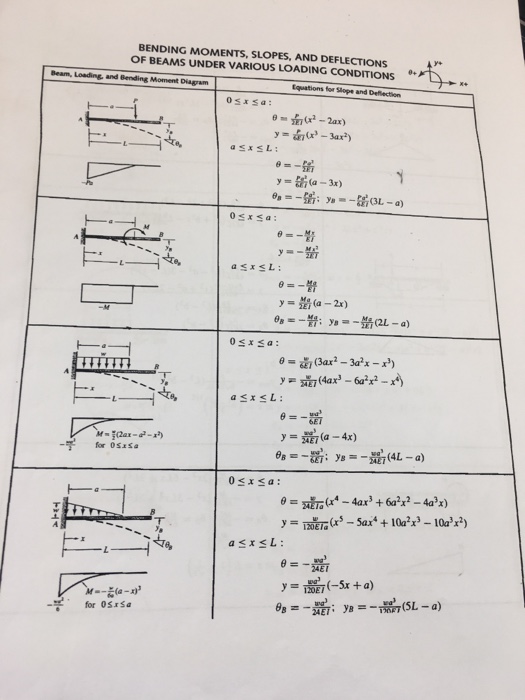 BENDING MOMENTS, SLOPES, AND DEFLECTIONS
OF BEAMS UNDER VARIOUS LOADING CONDITIONS
y+
θ+
x+
Beam, Loading, and Bending Moment Diagram
Equations for Slope and Deflection
a
P
A
B
x
L
y_B
θ_B
-Pa
0 ≤ x ≤ a:
θ = P/2EI (x² - 2ax)
y = P/6EI (x³ - 3ax²)
a ≤ x ≤ L:
θ = - Pa²/2EI
y = Pa²/6EI (a - 3x)
θ_B = - Pa²/2EI; y_B = - Pa²/6EI (3L - a)
a
M
A
B
x
L
y_B
θ_B
-M
0 ≤ x ≤ a:
θ = - Mx/EI
y = - Mx²/2EI
a ≤ x ≤ L:
θ = - Ma/EI
y = Ma/2EI (a - 2x)
θ_B = - Ma/EI; y_B = - Ma/2EI (2L - a)
a
w
A
B
x
L
y_B
θ_B
- wa²/2
M = w/2 (2ax - a² - x²)
for 0 ≤ x ≤ a
0 ≤ x ≤ a:
θ = w/6EI (3ax² - 3a²x - x³)
y = w/24EI (4ax³ - 6a²x² - x⁴)
a ≤ x ≤ L:
θ = - wa³/6EI
y = wa³/24EI (a - 4x)
θ_B = - wa³/6EI; y_B = - wa³/24EI (4L - a)
a
w
A
B
x
L
y_B
θ_B
- wa²/6
M = - w/6a (a - x)³
for 0 ≤ x ≤ a
0 ≤ x ≤ a:
θ = w/24EIa (x⁴ - 4ax³ + 6a²x² - 4a³x)
y = w/120EIa (x⁵ - 5ax⁴ + 10a²x³ - 10a³x²)
a ≤ x ≤ L:
θ = - wa³/24EI
y = wa³/120EI (-5x + a)
θ_B = - wa³/24EI; y_B = - wa³/120EI (5L - a)